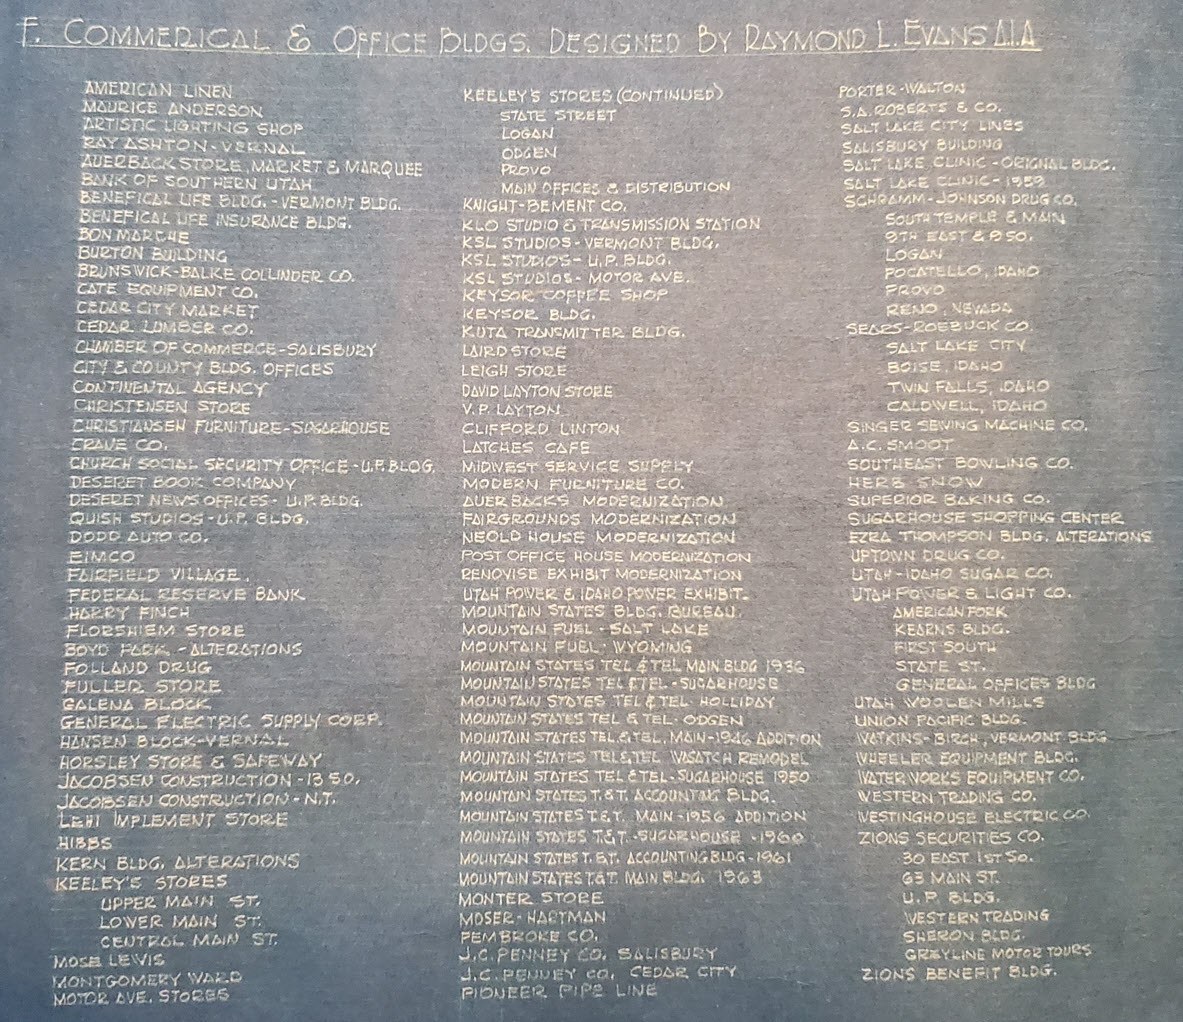 F. COMMERICAL & OFFICE BLDGS. DESIGNED BY RAYMOND L. EVANS A.I.A
AMERICAN LINEN
MAURICE ANDERSON
ARTISTIC LIGHTING SHOP
RAY ASHTON - VERNAL
AUERBACK STORE, MARKET & MARQUEE
BANK OF SOUTHERN UTAH
BENEFICAL LIFE BLDG. - VERMONT BLDG.
BENEFICAL LIFE INSURANCE BLDG.
BON MARCHE
BURTON BUILDING
BRUNSWICK-BALKE COLLINDER CO.
CATE EQUIPMENT CO.
CEDAR CITY MARKET
CEDAR LUMBER CO.
CHAMBER OF COMMERCE-SALISBURY
CITY & COUNTY BLDG. OFFICES
CONTINENTAL AGENCY
CHRISTENSEN STORE
CHRISTIANSEN FURNITURE-SUGARHOUSE
CRANE CO.
CHURCH SOCIAL SECURITY OFFICE - U.P. BLDG.
DESERET BOOK COMPANY
DESERET NEWS OFFICES - U.P. BLDG.
QUISH STUDIOS - U.P. BLDG.
DODD AUTO CO.
EIMCO
FAIRFIELD VILLAGE.
FEDERAL RESERVE BANK
HARRY FINCH
FLORSHIEM STORE
BOYD PARK - ALTERATIONS
FOLLAND DRUG
FULLER STORE
GALENA BLOCK
GENERAL ELECTRIC SUPPLY CORP.
HANSEN BLOCK-VERNAL
HORSLEY STORE & SAFEWAY
JACOBSEN CONSTRUCTION - 13 SO.
JACOBSEN CONSTRUCTION - N.T.
LEHI IMPLEMENT STORE
HIBBS
KERN BLDG. ALTERATIONS
KEELEY'S STORES
UPPER MAIN ST.
LOWER MAIN ST.
CENTRAL MAIN ST.
MOSE LEWIS
MONTGOMERY WARD
MOTOR AVE. STORES
KEELEY'S STORES (CONTINUED)
STATE STREET
LOGAN
ODGEN
PROVO
MAIN OFFICES & DISTRIBUTION
KNIGHT-BEMENT CO.
KLO STUDIO & TRANSMISSION STATION
KSL STUDIOS - VERMONT BLDG.
KSL STUDIOS - U.P. BLDG.
KSL STUDIOS - MOTOR AVE.
KEYSOR COFFEE SHOP
KEYSOR BLDG.
KUTA TRANSMITTER BLDG.
LAIRD STORE
LEIGH STORE
DAVID LAYTON STORE
V.P. LAYTON
CLIFFORD LINTON
LATCHES CAFE
MIDWEST SERVICE SUPPLY
MODERN FURNITURE CO.
AUERBACKS MODERNIZATION
FAIRGROUNDS MODERNIZATION
NEOLD HOUSE MODERNIZATION
POST OFFICE HOUSE MODERNIZATION
RENOVISE EXHIBIT MODERNIZATION
UTAH POWER & IDAHO POWER EXHIBIT.
MOUNTAIN STATES BLDG. BUREAU.
MOUNTAIN FUEL - SALT LAKE
MOUNTAIN FUEL - WYOMING
MOUNTAIN STATES TEL & TEL MAIN BLDG 1936
MOUNTAIN STATES TEL & TEL - SUGARHOUSE
MOUNTAIN STATES TEL & TEL HOLLIDAY
MOUNTAIN STATES TEL & TEL - ODGEN
MOUNTAIN STATES TEL & TEL, MAIN-1946 ADDITION
MOUNTAIN STATES TEL & TEL WASATCH REMODEL
MOUNTAIN STATES TEL & TEL - SUGARHOUSE 1950
MOUNTAIN STATES T. & T. ACCOUNTING BLDG.
MOUNTAIN STATES T. & T. MAIN - 1956 ADDITION
MOUNTAIN STATES T. & T. - SUGARHOUSE - 1960
MOUNTAIN STATES T. & T. ACCOUNTING BLDG - 1961
MOUNTAIN STATES T. & T. MAIN BLDG. 1963
MONTER STORE
MOSER - HARTMAN
PEMBROKE CO.
J.C. PENNEY CO. SALISBURY
J.C. PENNEY CO. CEDAR CITY
PIONEER PIPE LINE
PORTER - WALTON
S.A. ROBERTS & CO.
SALT LAKE CITY LINES
SALISBURY BUILDING
SALT LAKE CLINIC - ORIGNAL BLDG.
SALT LAKE CLINIC - 1959
SCHRAMM-JOHNSON DRUG CO.
SOUTH TEMPLE & MAIN
9TH EAST & 9 SO.
LOGAN
POCATELLO, IDAHO
PROVO
RENO, NEVADA
SEARS-ROEBUCK CO.
SALT LAKE CITY
BOISE, IDAHO
TWIN FALLS, IDAHO
CALDWELL, IDAHO
SINGER SEWING MACHINE CO.
A.C. SMOOT
SOUTHEAST BOWLING CO.
HERB SNOW
SUPERIOR BAKING CO.
SUGARHOUSE SHOPPING CENTER
EZRA THOMPSON BLDG. ALTERATIONS
UPTOWN DRUG CO.
UTAH-IDAHO SUGAR CO.
UTAH POWER & LIGHT CO.
AMERICAN FORK
KEARNS BLDG.
FIRST SOUTH
STATE ST.
GENERAL OFFICES BLDG
UTAH WOOLEN MILLS
UNION PACIFIC BLDG.
WATKINS - BIRCH, VERMONT BLDG
WHEELER EQUIPMENT BLDG.
WATER WORKS EQUIPMENT CO.
WESTERN TRADING CO.
WESTINGHOUSE ELECTRIC CO.
ZIONS SECURITIES CO.
30 EAST 1ST SO.
63 MAIN ST.
U.P. BLDG.
WESTERN TRADING
SHERON BLDG.
GREYLINE MOTOR TOURS
ZIONS BENEFIT BLDG.